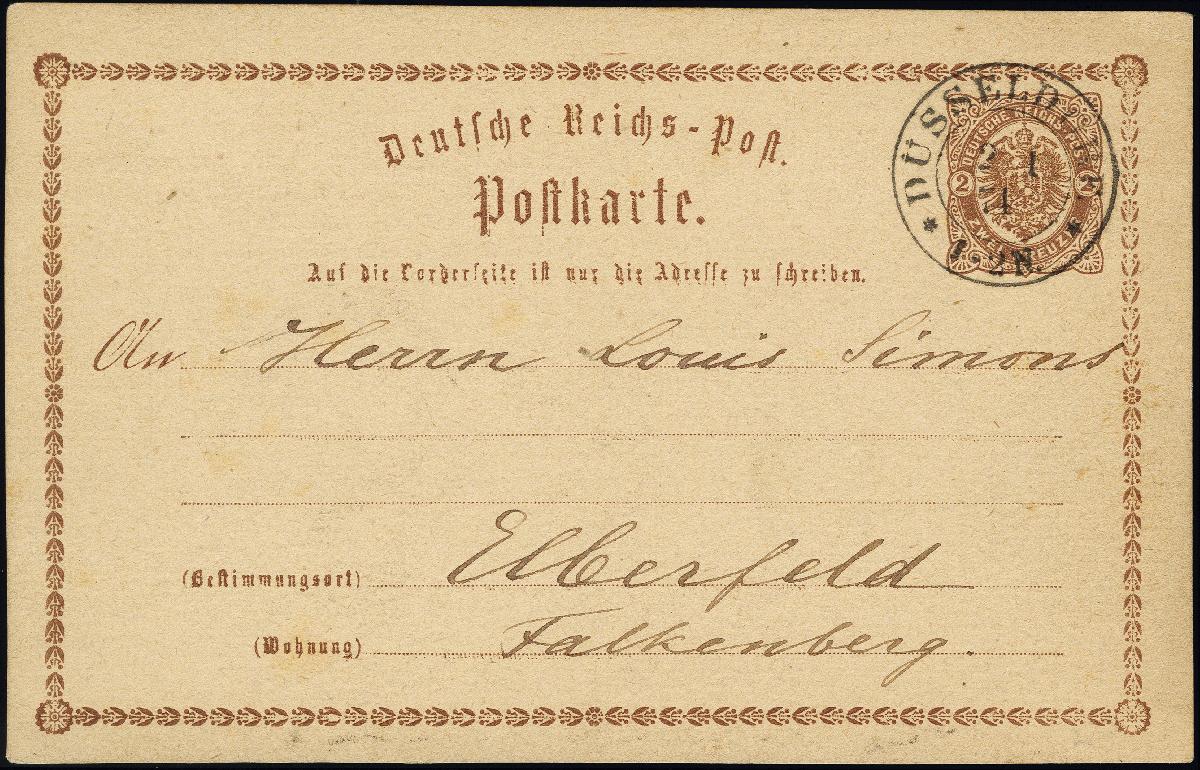 Deutsche Reichs-Post.
Postkarte.
DÜSSELDORF
2 1
1
1-2N.
DEUTSCHE REICHS-POST
2 2
ZWEI KREUZ
Auf die Vorderseite ist nur die Adresse zu schreiben.
An Herrn Louis Simons
(Bestimmungsort) Elberfeld
(Wohnung) Falkenberg.